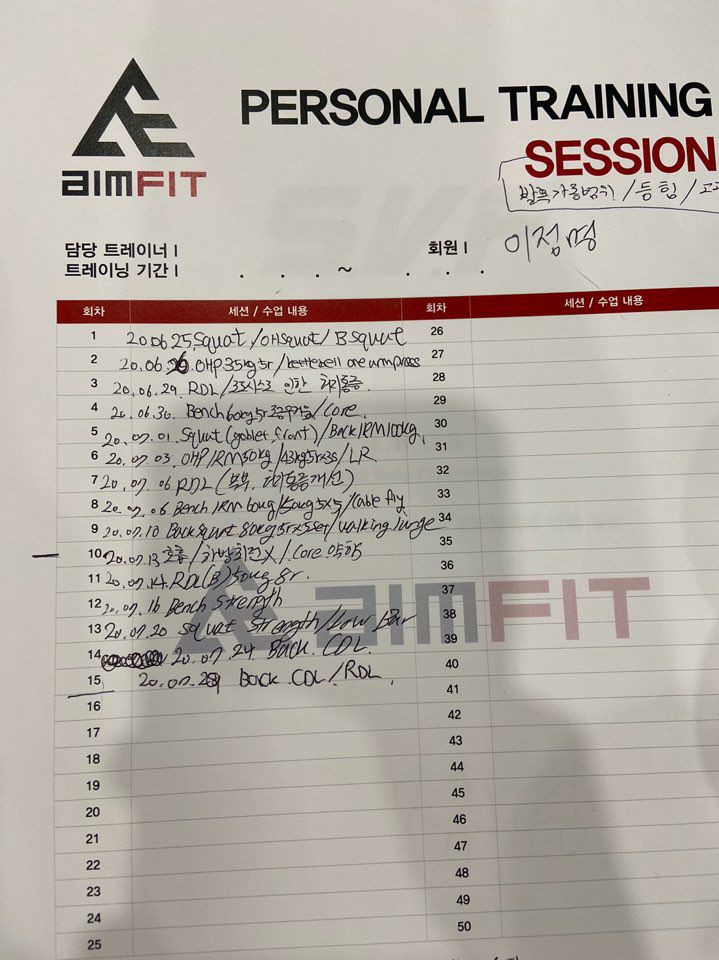 AIMFIT
PERSONAL TRAINING
SESSION
발목가동범위 / 등힘 /
담당 트레이너 |
회원 | 이점명
트레이닝 기간 | . . . ~ . . .
회차 세션 / 수업 내용 회차 세션 / 수업 내용
1 20.06 25. Squat / OHsquat / B squat 26
2 20.06.26. OHP 35kg 5r / kettlebell one arm press 27
3 20.06.29. RDL / 인한 허리통증. 28
4 20.06.30. Bench 60kg 5r / Core. 29
5 20.07.01. Squat (goblet, front) / Back 1RM 100kg. 30
6 20.07.03. OHP 1RM 50kg / 43kg 5r x 3s / LR 31
7 20.07.06 RDL ( 허리통증개선) 32
8 20.07.06 Bench 1RM 60kg / 50kg 5x5 / Cable fly 33
9 20.07.10 Back squat 80kg 5r x 5set / walking lunge 34
10 20.07.13 호흡 / X / Core 약함 35
11 20.07.14. RDL(B) 50kg 8r. 36
12 20.07.16 Bench Strength 37
13 20.07.20 Squat Strength / Low Bar 38
14 20.07.24 Back. CDL. 39
15 20.07.29 Back CDL / RDL. 40
16 41
17 42
18 43
19 44
20 45
21 46
22 47
23 48
24 49
25 50
AIMFIT